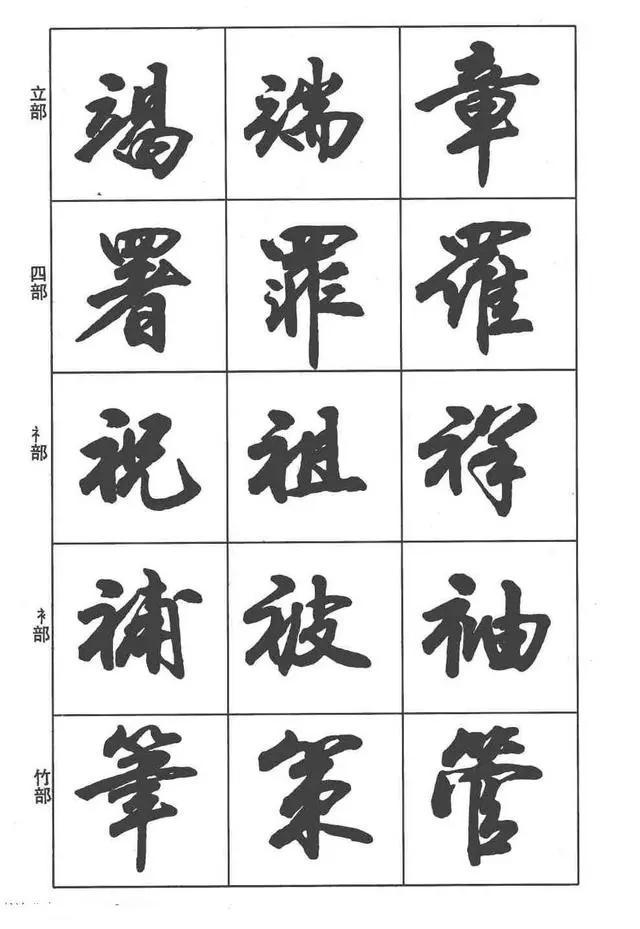 立部 竭 端 章
四部 署 罪 羅
礻部 祝 祖 祥
衤部 補 被 袖
竹部 筆 策 管